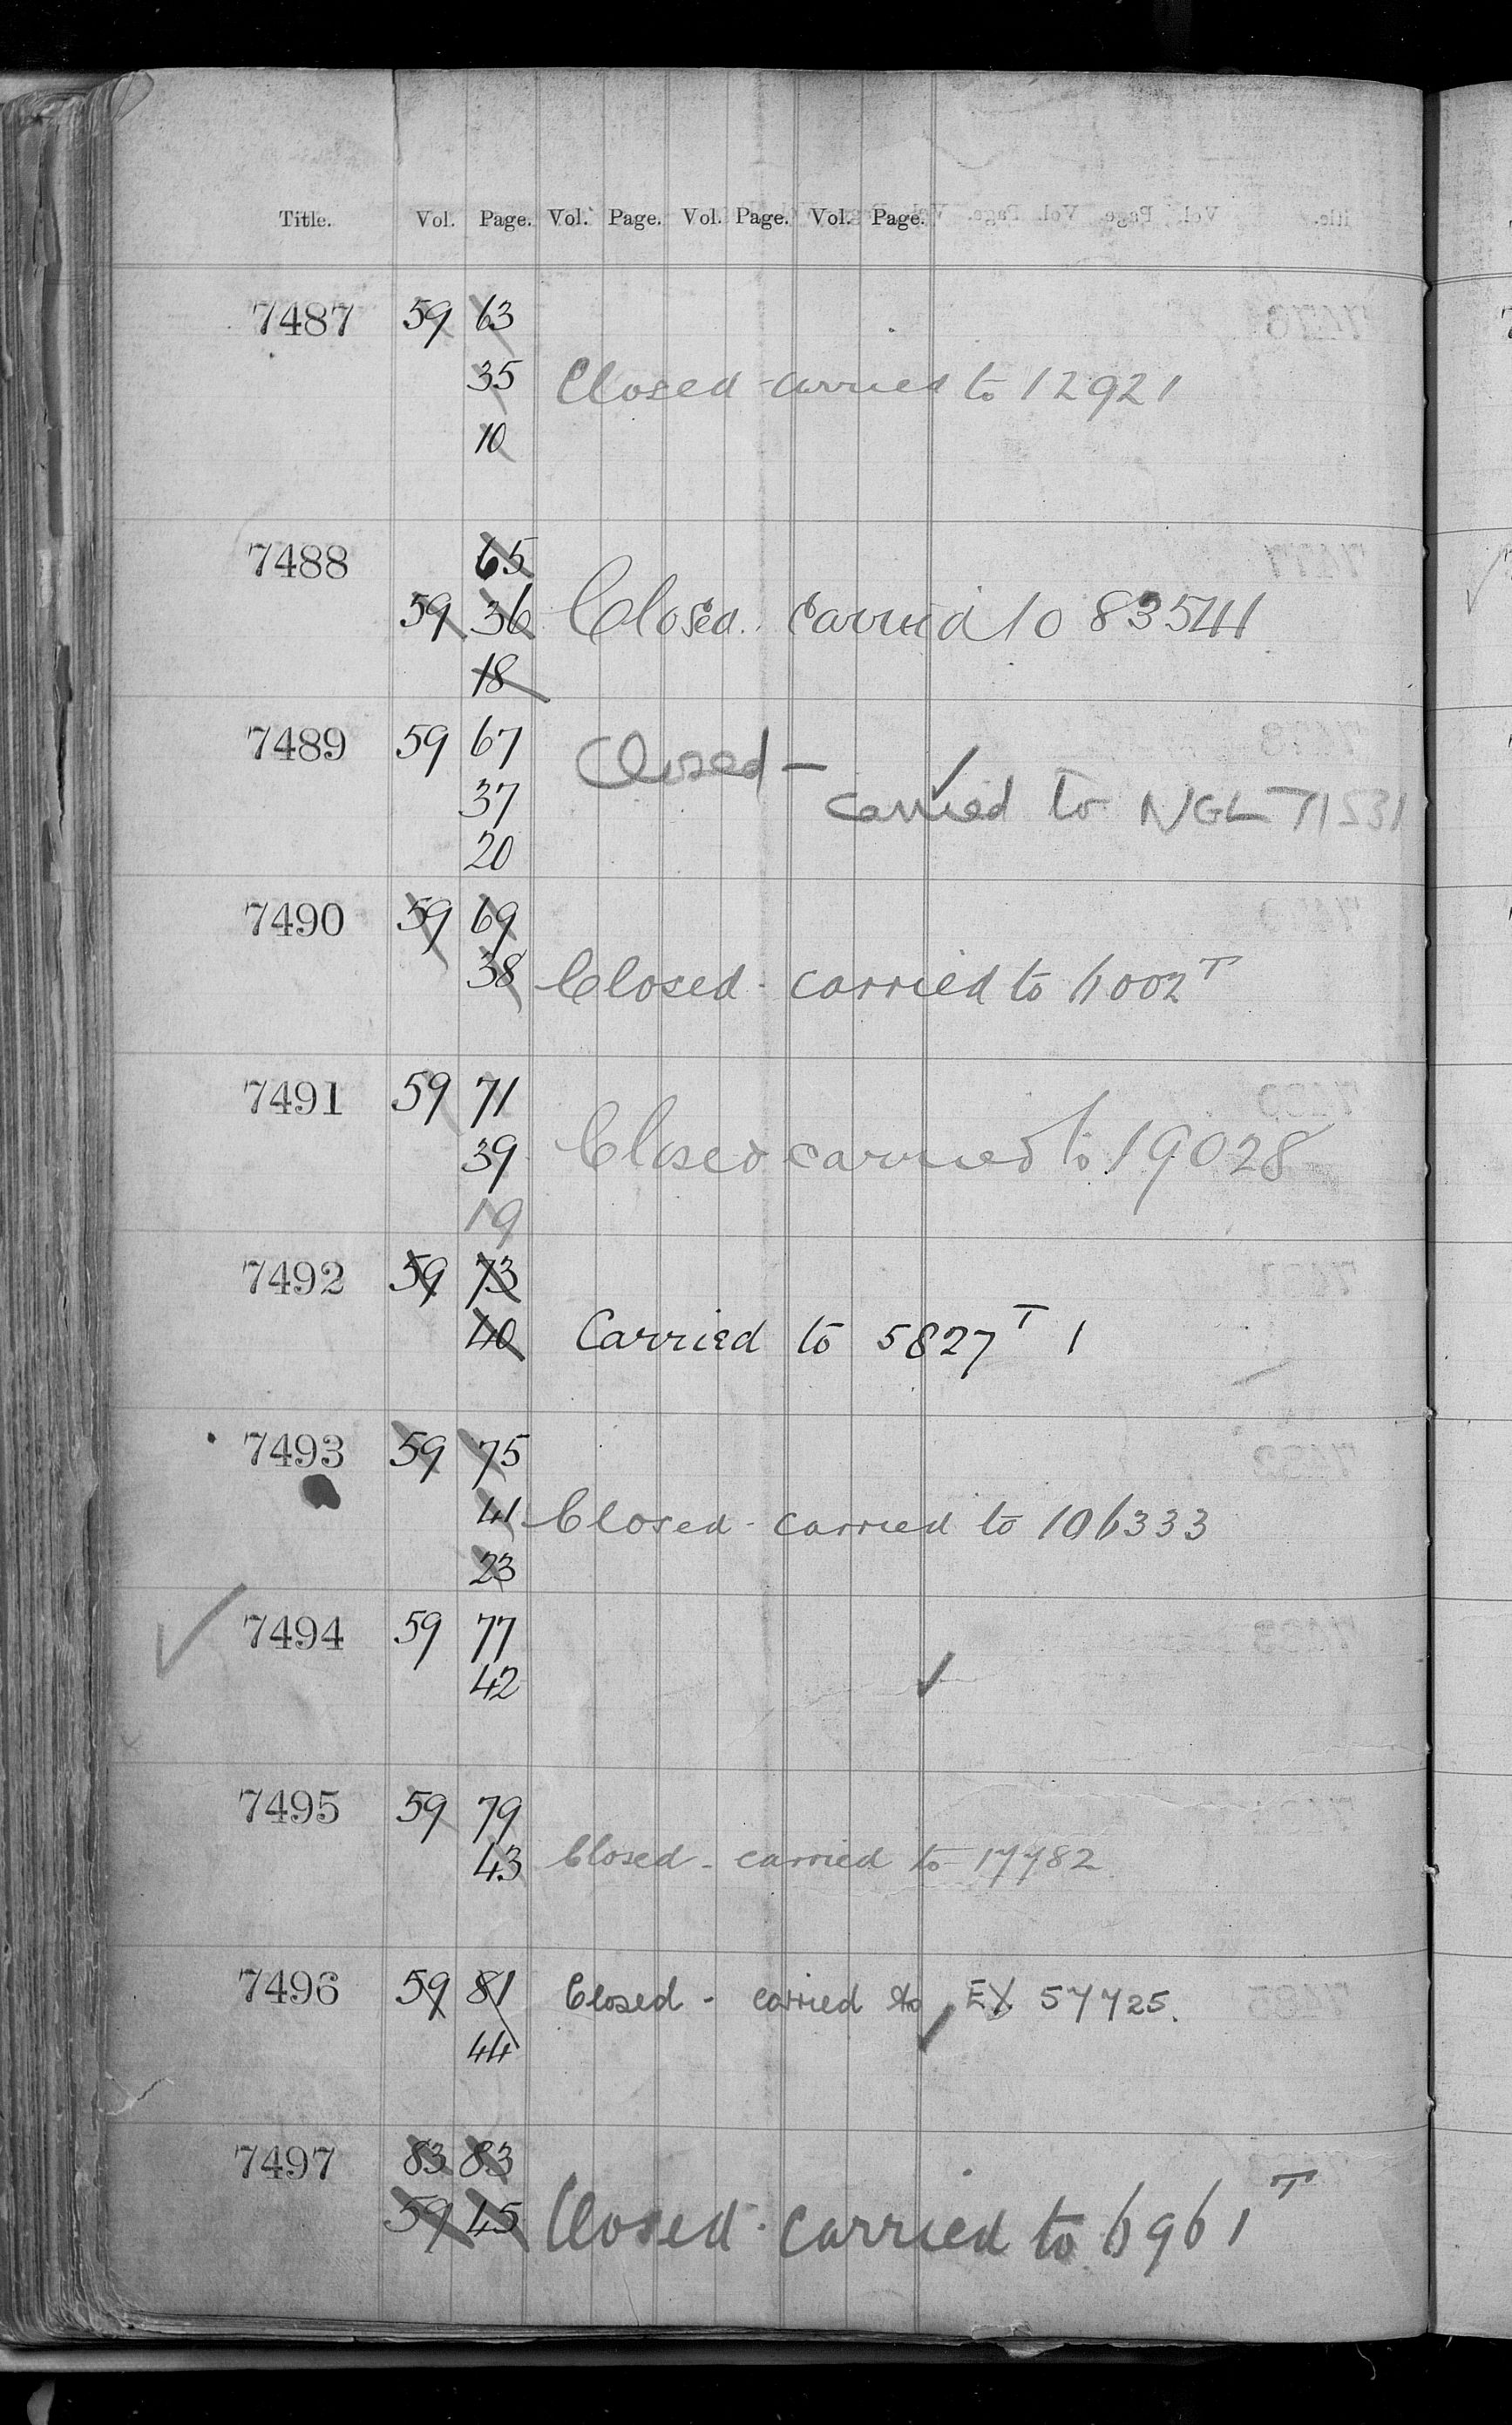 Title. Vol. Page. Vol. Page. Vol. Page. Vol. Page.
7487 59 63
35 Closed carried to 12921
10
7488 65
59 36 Closed. Carried to 83541
18
7489 59 67 Closed —
37 carried to NGL 71531
20
7490 59 69
38 Closed - carried to 6002 T
7491 59 71
39 Closed carried to 19028
19
7492 59 73
40 Carried to 5827 T 1
7493 59 75
41 Closed - carried to 106333
23
7494 59 77
42
7495 59 79
43 Closed - carried to 17782
7496 59 81 Closed - carried to EX 57725.
44
7497 83 83
59 45 Closed - carried to 6961 T